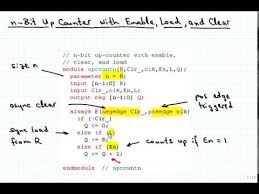 n-Bit Up Counter with Enable, Load, and Clear
// n-bit up-counter with enable,
// clear, and load
module upcountn(R,Clr_,clk,En,L,Q);
size n
parameter n = 8;
input [n-1:0] R;
input Clr_,clk,En,L;
output reg [n-1:0] Q;
sync clear
pos edge
triggered
always @(negedge Clr_,posedge clk)
if (!Clr_)
Q <= 0;
sync load
from R
else if (L)
Q <= R;
else if (En)
counts up if En = 1
Q <= Q + 1;
endmodule // upcountn